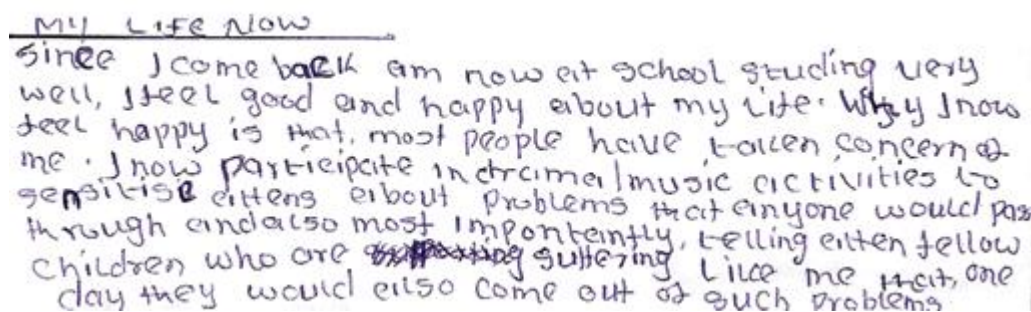 MY LIFE NOW
Since I come back am now at school studing very
well, I feel good and happy about my life. Why I now
feel happy is that, most people have taken concern of
me. I now participate in drama/music activities to
sensitise about problems that anyone would pas
through and also most importantly, telling fellow
children who are suffering like me that, one
day they would also come out of such problems